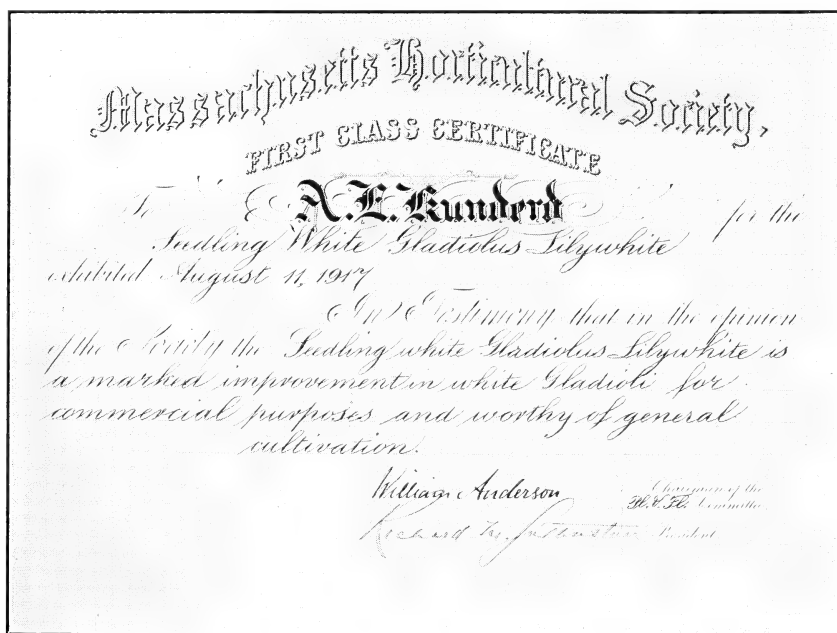 Massachusetts Horticultural Society,
FIRST CLASS CERTIFICATE
To A. E. Kunderd for the
Seedling White Gladiolus Lilywhite
exhibited August 11, 1917
In Testimony that in the opinion
of the Society the Seedling white Gladiolus Lilywhite is
a marked improvement in white Gladioli for
commercial purposes and worthy of general
cultivation.
William Anderson Chairman of the
Pl. & Fl. Committee
Richard M. Saltonstall President